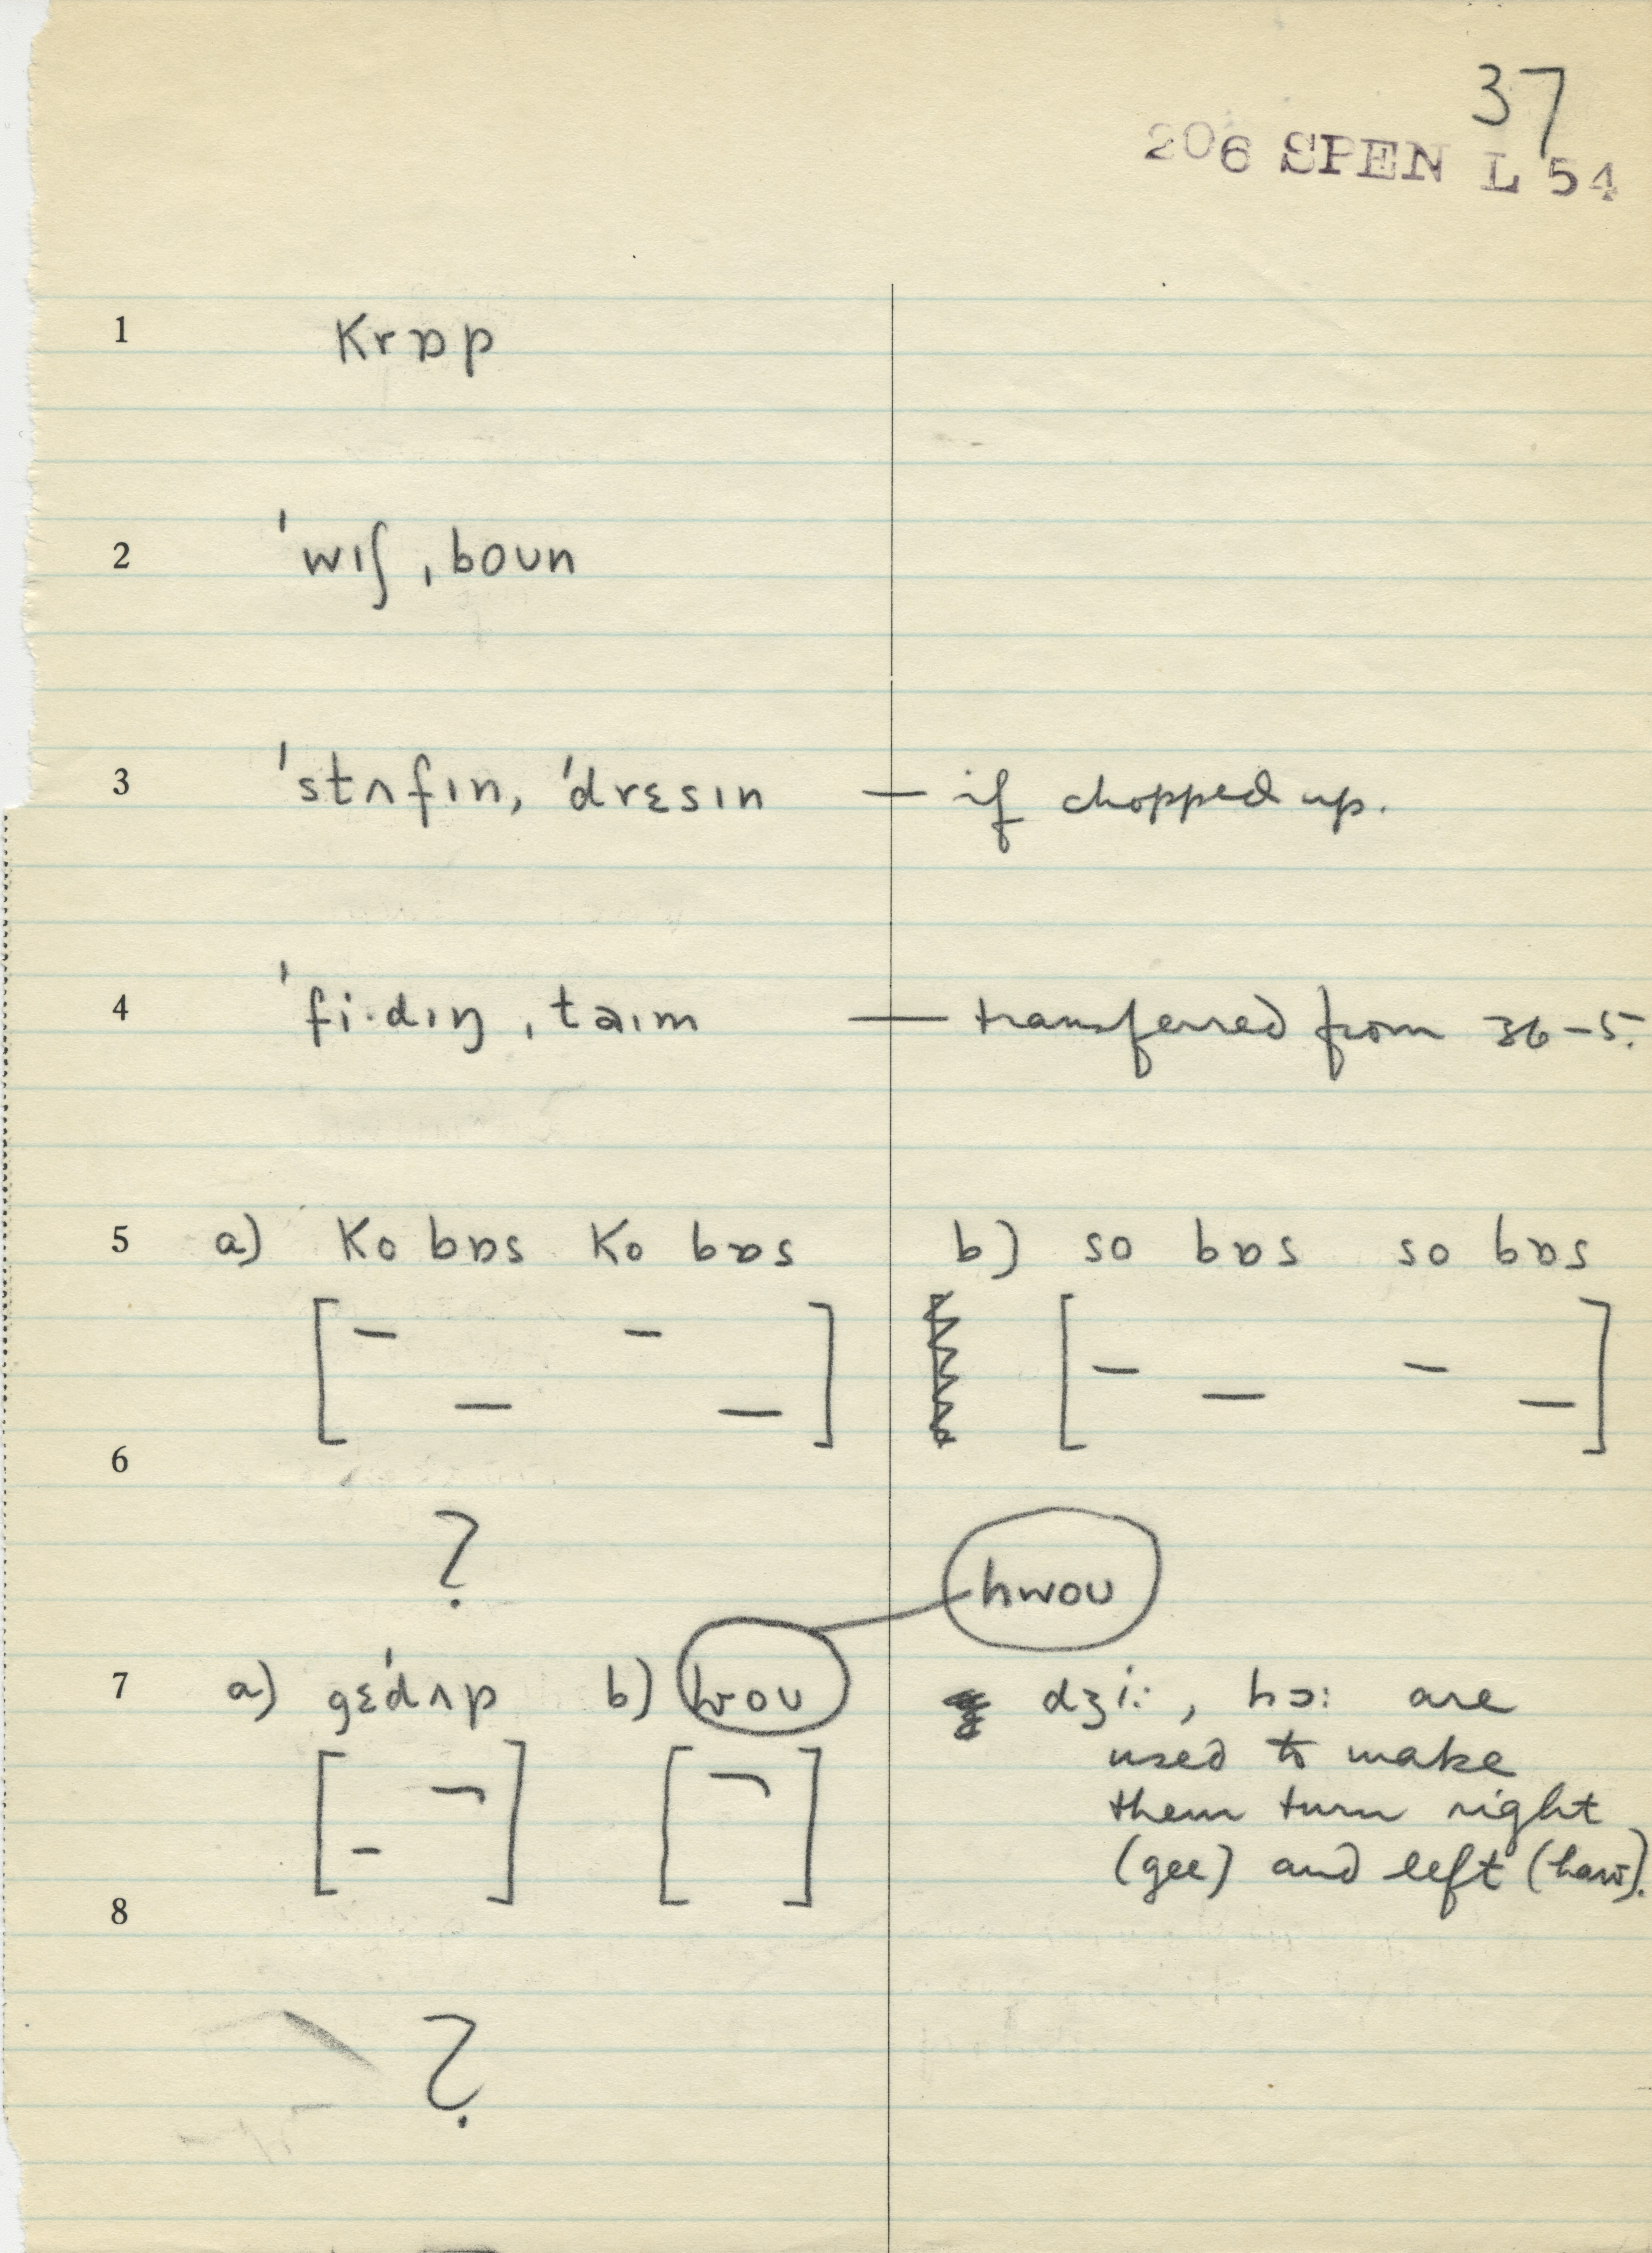 37
206 SPEN L 54
1 krɒp
2 ˈwɪʃˌboun
3 ˈstʌfɪn, ˈdrɛsɪn — if chopped up.
4 ˈfi·dɪŋˌtaɪm — transferred from 36-5.
5 a) ko bɒs ko bɒs b) so bɒs so bɒs
6
?
hwoʊ
7 a) gɛˈdʌp b) woʊ dʒi:, hɔ: are
used to make
them turn right
(gee) and left (haw).
8
?